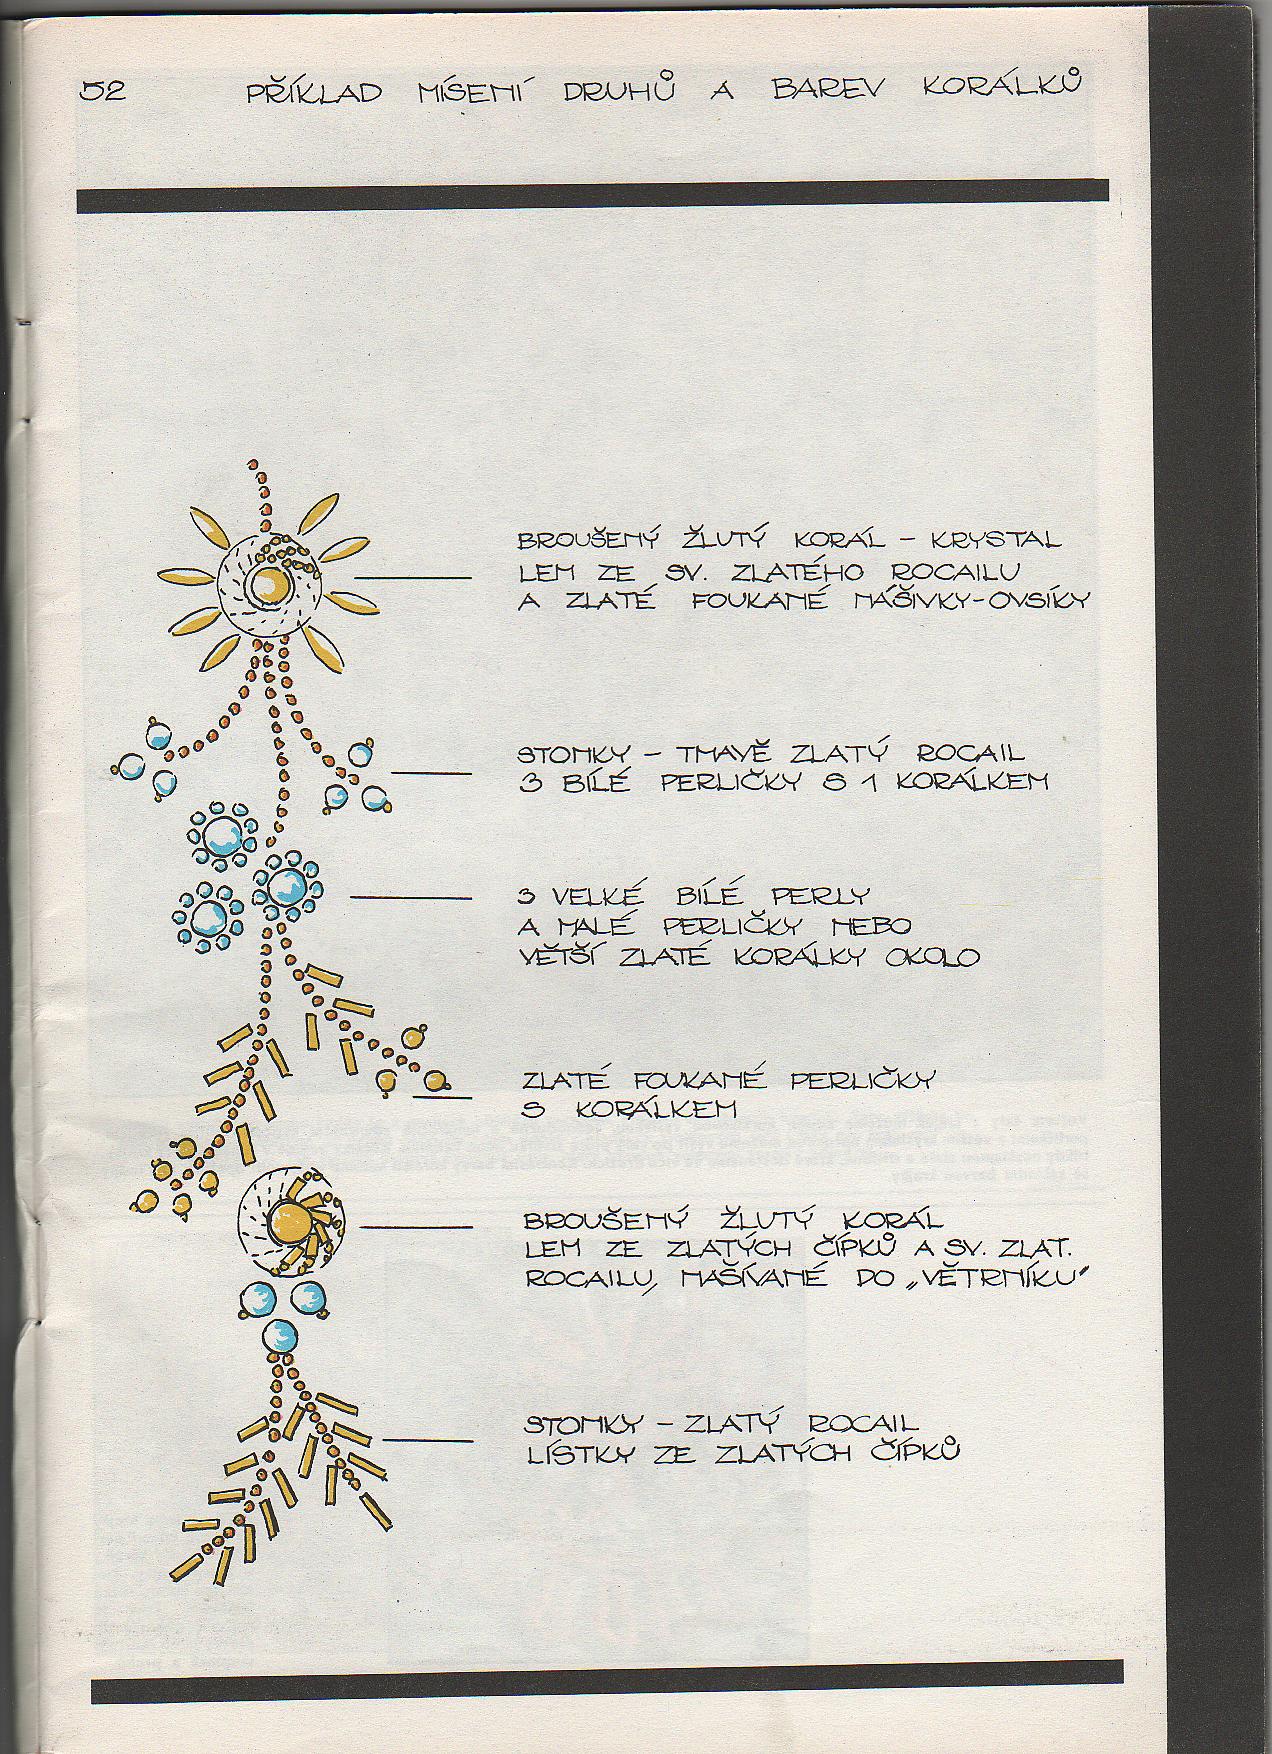 52 PŘÍKLAD MÍSENÍ DRUHŮ A BAREV KORÁLKŮ
BROUŠENÝ ŽLUTÝ KORÁL – KRYSTAL
LEM ZE SV. ZLATÉHO ROCAILU
A ZLATÉ FOUKANÉ NÁŠIVKY-OVSÍKY
STONKY – TMAVĚ ZLATÝ ROCAIL
3 BÍLÉ PERLIČKY S 1 KORÁLKEM
3 VELKÉ BÍLÉ PERLY
A MALÉ PERLIČKY NEBO
VĚTŠÍ ZLATÉ KORÁLKY OKOLO
ZLATÉ FOUKANÉ PERLIČKY
S KORÁLKEM
BROUŠENÝ ŽLUTÝ KORÁL
LEM ZE ZLATÝCH ČÍPKŮ A SV. ZLAT.
ROCAILU, NAŠÍVANÉ DO „VĚTRNÍKU"
STONKY – ZLATÝ ROCAIL
LÍSTKY ZE ZLATÝCH ČÍPKŮ